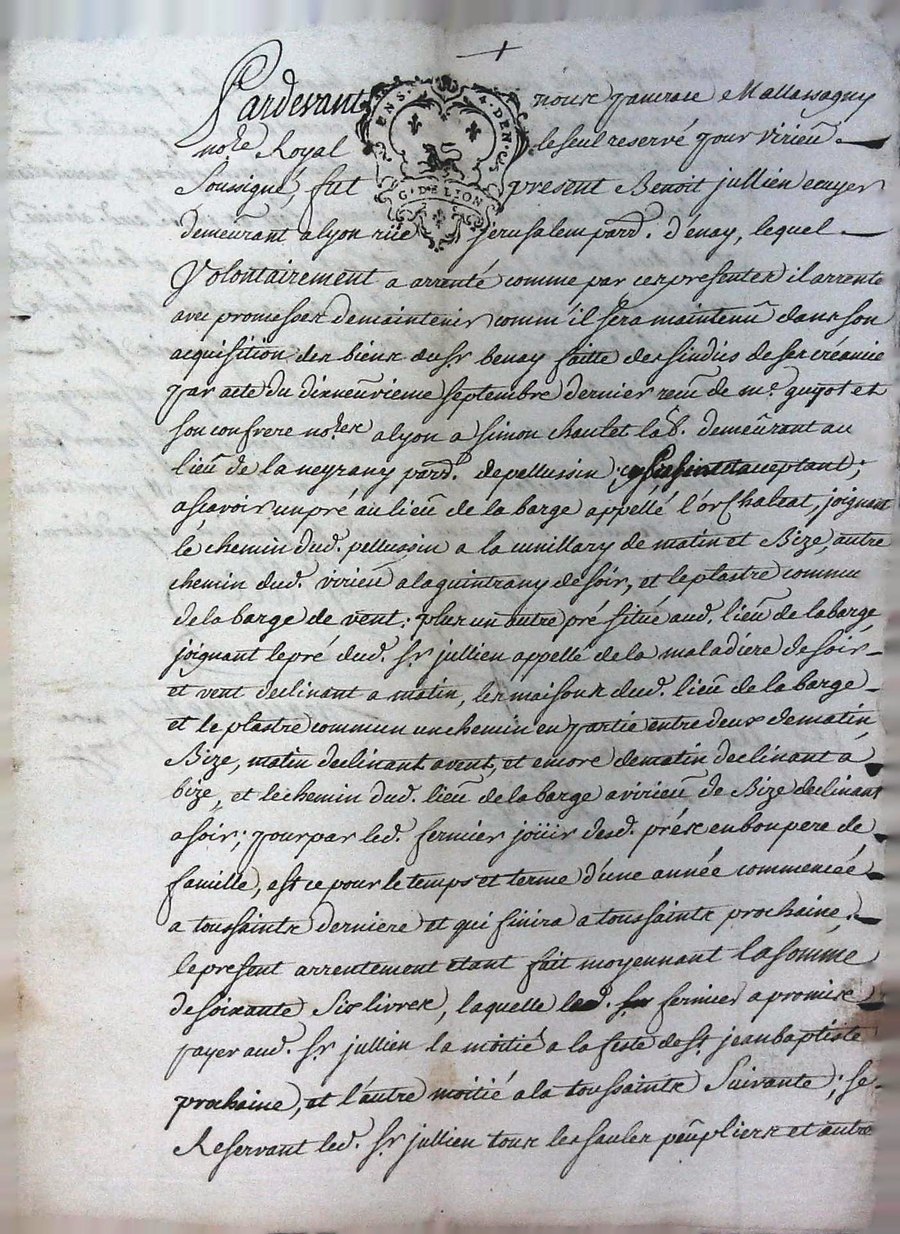 +
Pardevant nous François Mallassagny
no.re Royal le seul reservé pour virieu
Soussigné, fut present Benoit jullien ecuyer
demeurant a lyon rüe jerusalem parr. d'énay, lequel
Volontairement a arrenté comme par ces presentes il arrente
avec promesses de maintenir comm'il sera maintenu dans son
acquisition des biens du Sr. benay faitte des sindics de ses créanciers
par acte du dixneuvieme septembre dernier receu de me. guyot et
son confrere no.res a lyon a Simon chaulet lab. demeurant au
lieu de la neyrany parr. de pellussin, present et acceptant;
ascavoir un pré au lieu de la barge appellé l'or chaleat, joignant
le chemin dud. pellussin a la cunillary de matin et Bize, autre
chemin dud. virieu a la quintrany de soir, et le plastre commu
de la barge de vent; plus un autre pré situé aud. lieu de la barge
joignant le pré dud. Sr. jullien appellé de la maladiere de soir
et vent declinant a matin, les maisons dud. lieu de la barge
et le plastre commun un chemin en partie entre deux de matin
Bize, matin declinant a vent, et encore de matin declinant à
bize, et le chemin dud. lieu de la barge a virieu de Bize declinant
a soir; pour par led. fermier joüir desd. prés en bon pere de
famille, est ce pour le temps et terme d'une année commencée
a toussaints derniere et qui finira a toussaints prochaine.
le present arrentement etant fait moyennant la somme
de soixante Six livres, laquelle led. fermier a promis
payer aud. Sr. jullien la moitié a la feste de St. jean baptiste
prochaine, et l'autre moitié a la toussaints Suivante; se
Reservant led. Sr. jullien tous les saules peupliers et autre
ENS. 4. DEN.
G. DE LION